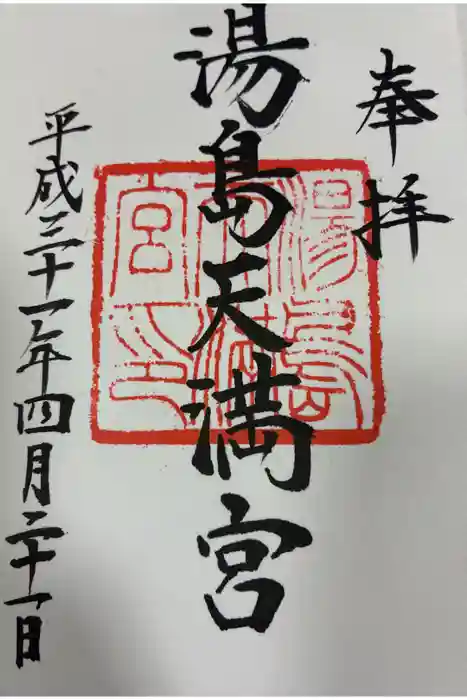 奉拝
湯島天満宮
平成三十一年四月二十一日
湯島
天満
宮印